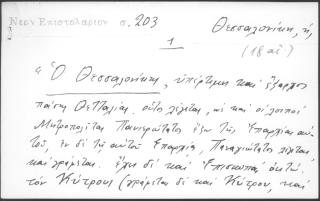 Νεον Επιστολαριον σ. 203
Θεσσαλονίκη, ἡ
1
(18 αἰ.)
"Ὁ Θεσσαλονίκης, ὑπέρτιμος καὶ ἔξαρχος
πάσης Θετταλίας. οὗτος λέγεται, ὡς καὶ οἱ λοιποὶ
Μητροπολῖται Πανιερώτατος ἔξω τῆς Ἐπαρχίας αὐ-
τοῦ, ἐν δὲ τῇ αὐτοῦ Ἐπαρχίᾳ, Παναγιώτατος λέγεται
καὶ γράφεται. ἔχει δὲ καὶ Ἐπισκοπὰς ὀκτώ.
τὸν Κύτρους (γράφεται δὲ καὶ Κύτρου, καὶ